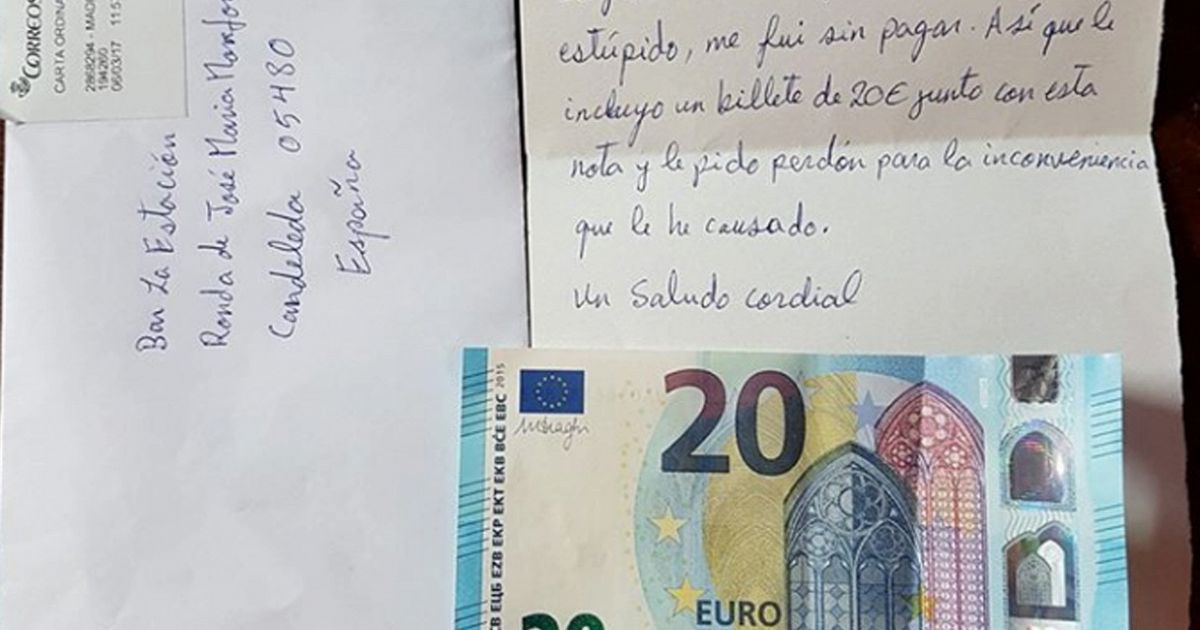 CORREOS
CARTA ORDINA
2868294 - MADR
194260
06/03/17 11:5
Bar La Estación
Ronda de José Maria Monfor
Candeleda 05480
España
estúpido, me fui sin pagar. Así que le
incluyo un billete de 20€ junto con esta
nota y le pido perdón para la inconveniencia
que le he causado.
Un Saludo cordial
20
EURO
MDraghi
20
ЕЦБ EZB EKP EKT EKB BĊE EBC 2015